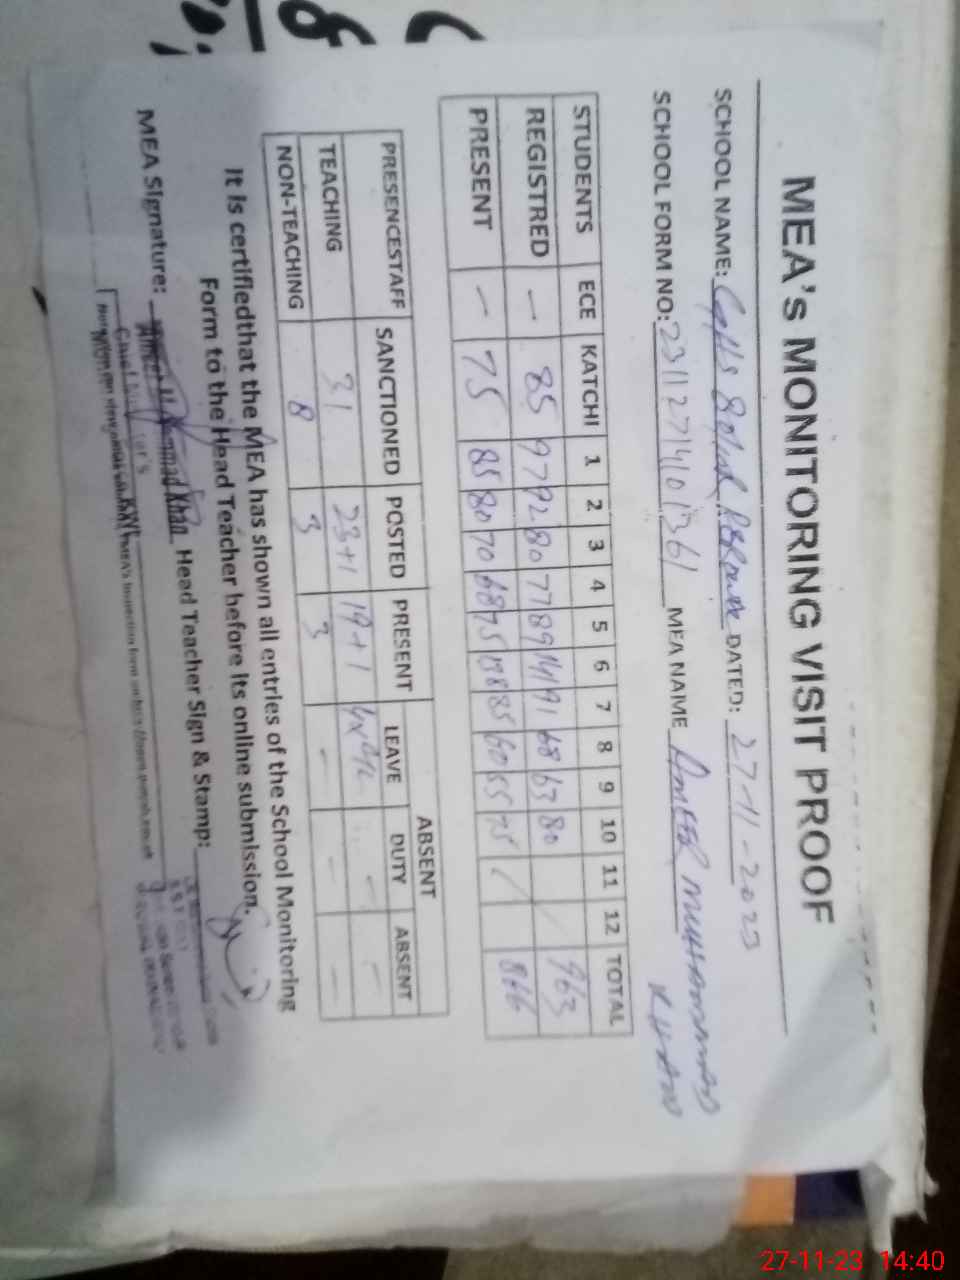 MEA's MONITORING VISIT PROOF
SCHOOL NAME: GHS DATED: 27-11-2023
SCHOOL FORM NO: 23112714101361 MEA NAME AMEER MUHAMMAD
KHAN
STUDENTS ECE KATCHI 1 2 3 4 5 6 7 8 9 10 11 12 TOTAL
REGISTRED - 85 97 92 80 77 89 141 91 68 63 80 963
PRESENT - 75 85 80 70 68 75 138 85 60 55 75 866
PRESENCESTAFF SANCTIONED POSTED PRESENT ABSENT
LEAVE DUTY ABSENT
TEACHING 31 23+1 19+1 - -
NON-TEACHING 8 3 3 - - -
It is certifiedthat the MEA has shown all entries of the School Monitoring
Form to the Head Teacher before its online submission.
MEA Signature: Khan Head Teacher Sign & Stamp:
27-11-23 14:40